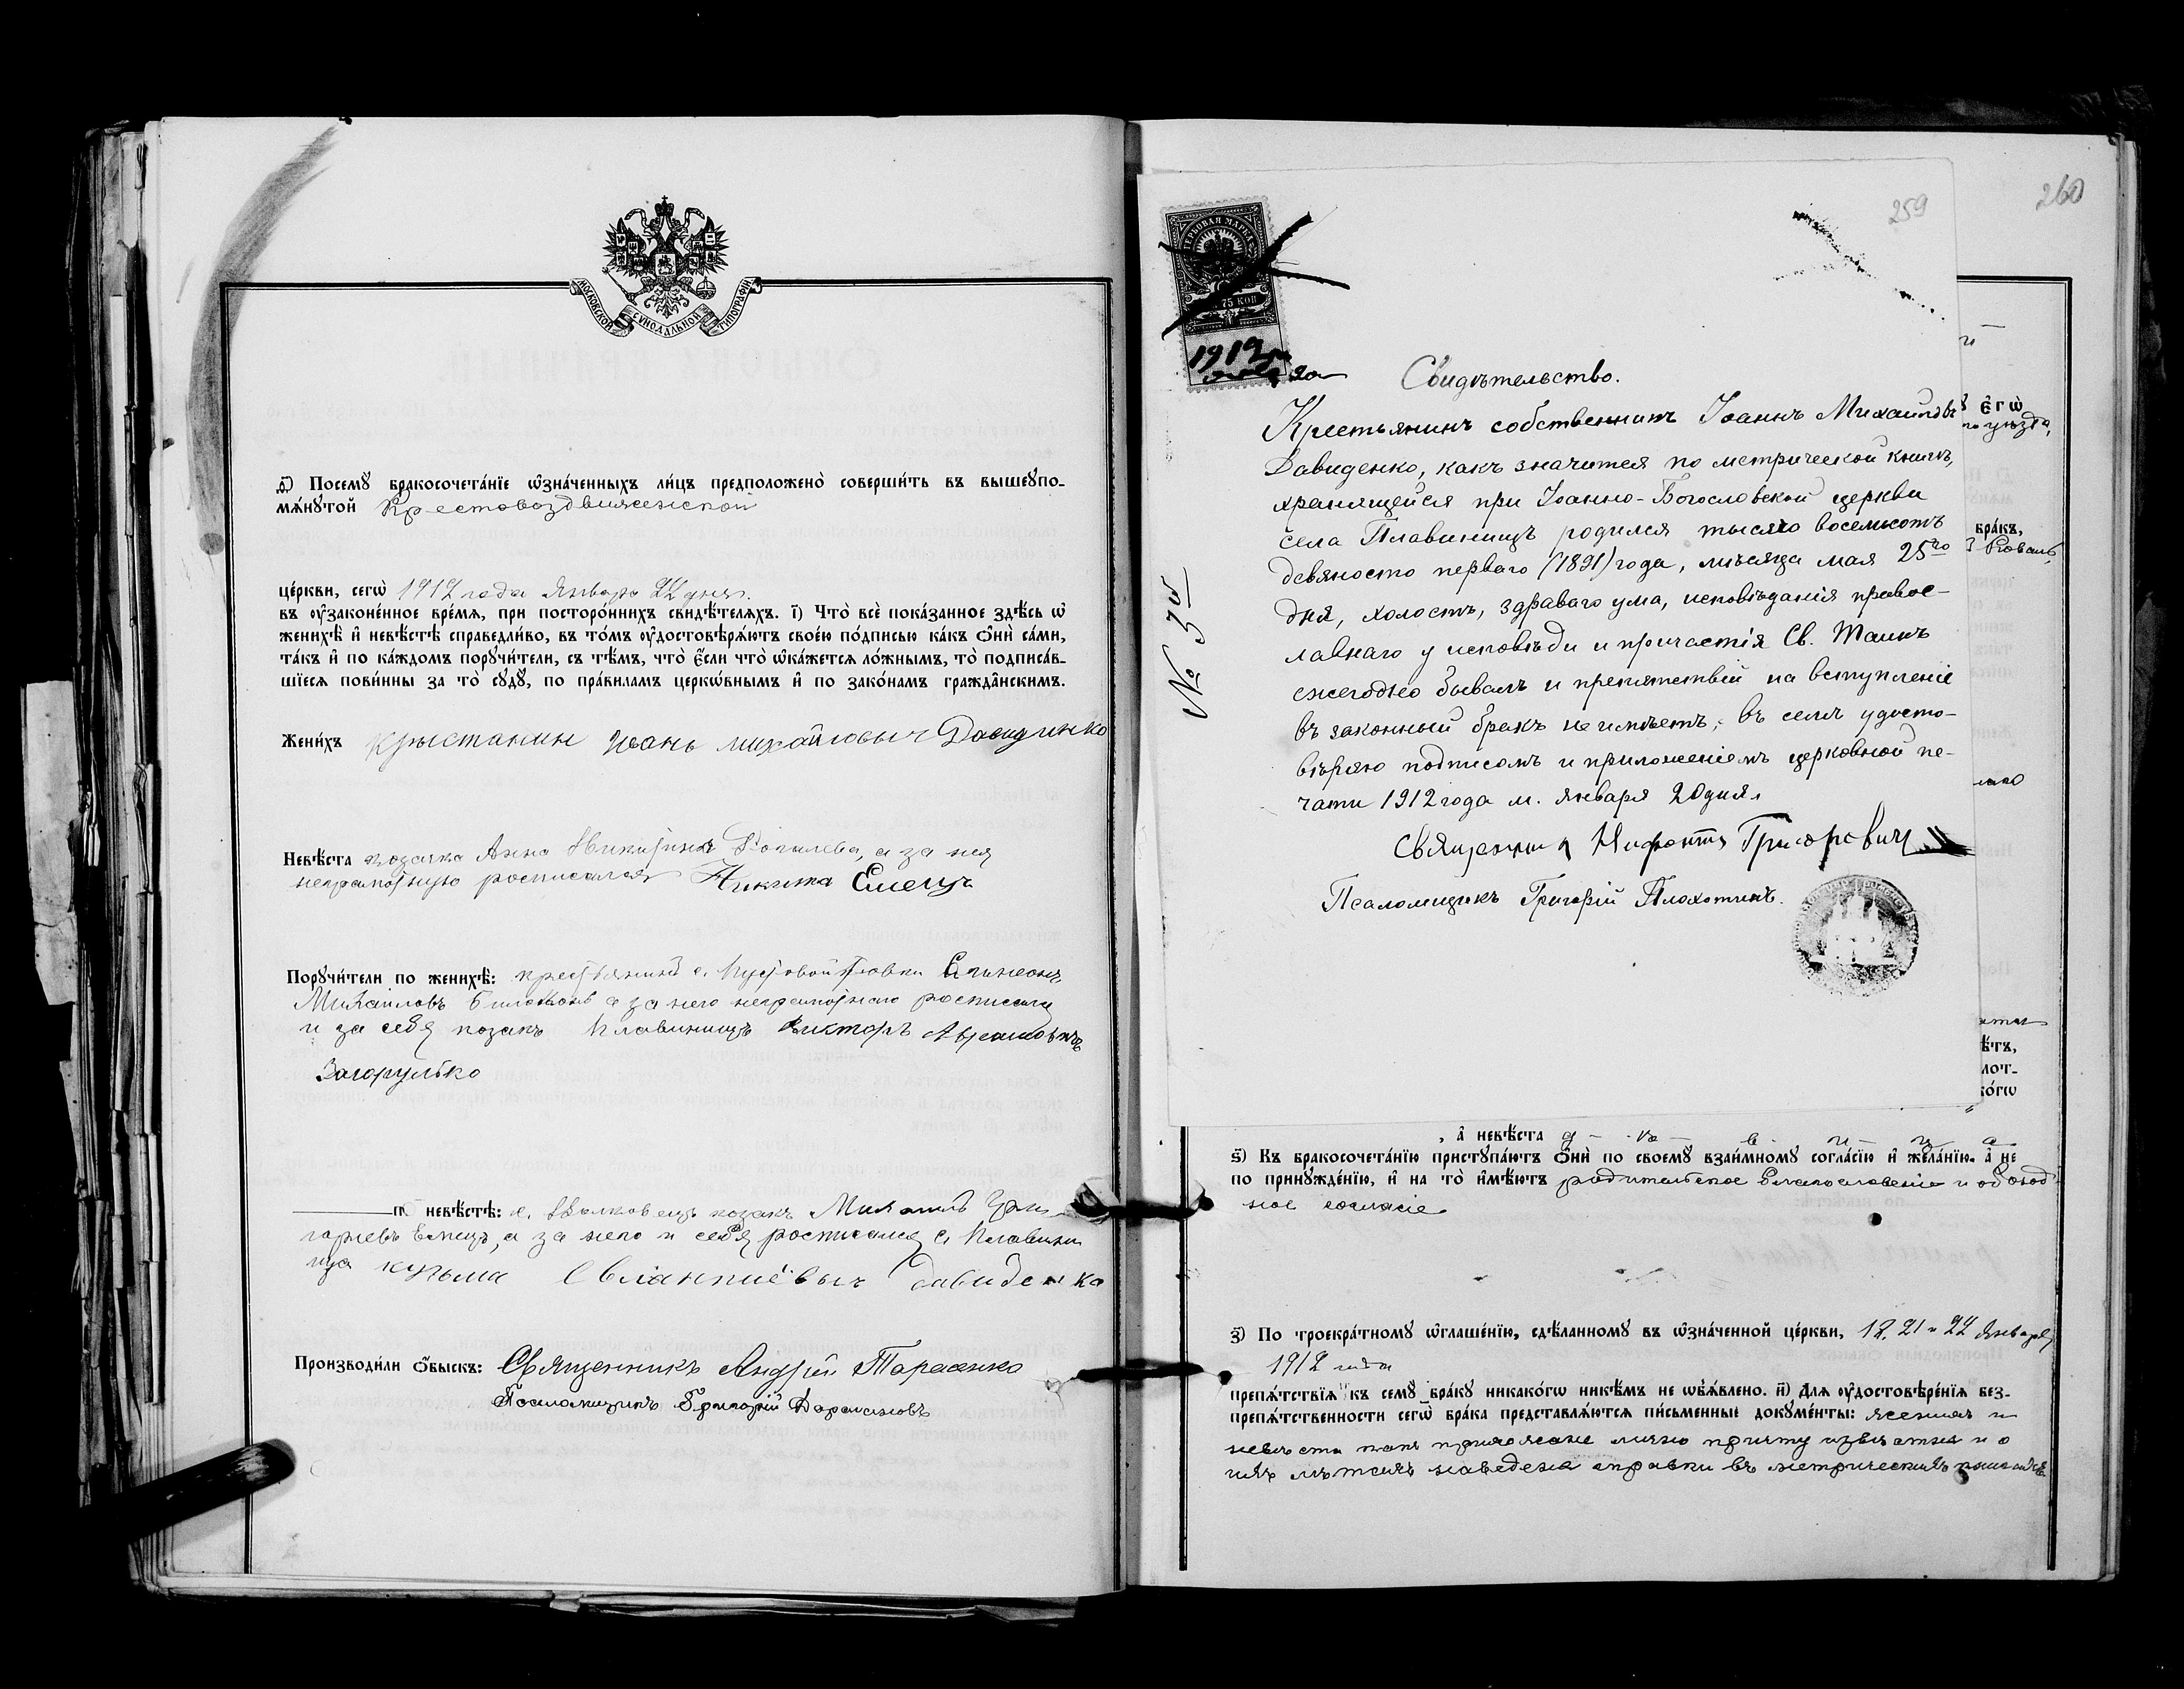 МОСКОВСКОЙ СѴНОДАЛЬНОЙ ТИПОГРАФІИ
ѳ҃) Посемꙋ̀ бракосочета́нїе ѡ҆зна́ченныхъ ли́цъ предположено̀ соверши́ть въ вышеꙋпо-
мѧ́нꙋтой Крестовоздвиженской
це́ркви, сегѡ̀ 1912 года Января 22 дня.
въ ᲂу҆законе́нное вре́мѧ, при посторо́ннихъ свидѣ́телѧхъ. і҃) Что̀ всѐ пока́занное здѣ́сь ѡ҆
женихѣ̀ и҆ невѣ́стѣ справедли́во, въ то́мъ ᲂу҆достовѣрѧ́ютъ свое́ю по́дписью ка́къ ѻ҆нѝ са́ми,
та́къ и҆ по ка́ждомъ порꙋчи́тели, съ тѣ́мъ, что̀ є҆́сли что̀ ѡ҆ка́жетсѧ ло́жнымъ, то̀ подписа́в-
шїесѧ пови́нны за то̀ сꙋдꙋ̀, по пра́виламъ церкѡ́внымъ и҆ по зако́намъ гражда̂нскимъ.
Жени́хъ крыстанин Иоань михайловыч Давидинко
Невѣ́ста козачка Анна Никитина Рогалева, а за нея
неграмотную росписался Никита Емецъ
Порꙋчи́тели по женихѣ̀: крестьянинъ с.
Михаиловъ а за него неграмотнаго росписался
и за себя козакъ Плавинищъ Викторъ Аврамовичъ
Загорулько
п невѣ́стѣ: с. Волковецъ козакъ Михаилъ Гри-
горіевъ Емецъ, а за него и себя росписался с. Плавини
ща кузьма Евлампиёвыч Давиденко
Производи́ли ѻ҆́быскъ: Священникъ Андрей Тарасенко
Псаломщикъ Григорій
259
260
ГЕРБОВАЯ МАРКА
75 КОП
1912
20
№ 3й
Свидѣтельство.
Крестьянинъ собственникъ Іоаннъ Михайловъ
Давиденко, какъ значится по метрической книгѣ,
хранящейся при Іоанно-Богословской церкви
села Плавинищъ родился тысяча восемьсотъ
девяносто перваго (1891) года, мѣсяца мая 25го
дня, холостъ, здраваго ума, исповѣданія правос-
лавнаго у исповѣди и причастія Св. Таинъ
ежегодно бывалъ и препятствій на вступленіе
въ законный бракъ не имѣетъ; въ семъ удосто-
вѣряю подписомъ и приложеніемъ церковной пе-
чати 1912 года м. января 20 дня.
Священникъ Нифонтъ Григоровичъ
Псаломщикъ Григорій Плохотинъ.
є҆гѡ̀
уѣзда,
бра́къ,
ѣ́тъ,
лот-
ко́гѡ
, а҆ невѣ́ста д - в и ц а
ѕ҃) Къ бракосочета́нїю пристꙋпа́ютъ ѻ҆нѝ по своемꙋ̀ взаи́мномꙋ согла́сїю и҆ жела́нїю, а҆ не
по принꙋжде́нїю, и҆ на то̀ и҆мѣ́ютъ родительское благословеніе и обоюд-
ное согласіе
з҃) По троекра́тномꙋ ѡ҆глаше́нїю, сдѣ́ланномꙋ въ ѡ҆зна́ченной це́ркви, 18, 21 и 22 Января
1912 года
препѧ́тствїѧ къ семꙋ̀ бра́кꙋ никако́гѡ никѣ́мъ не ѡ҆б̾ѧ́влено. и҃) Длѧ ᲂу҆достовѣре́нїѧ без-
препѧ́тственности сегѡ̀ бра́ка представлѧ́ютсѧ пи́сьменные докꙋме́нты: женихъ и
невѣста какъ прихожане лично причту извѣстны и о
ихъ лѣтахъ наведена справки въ метрическихъ книгахъ